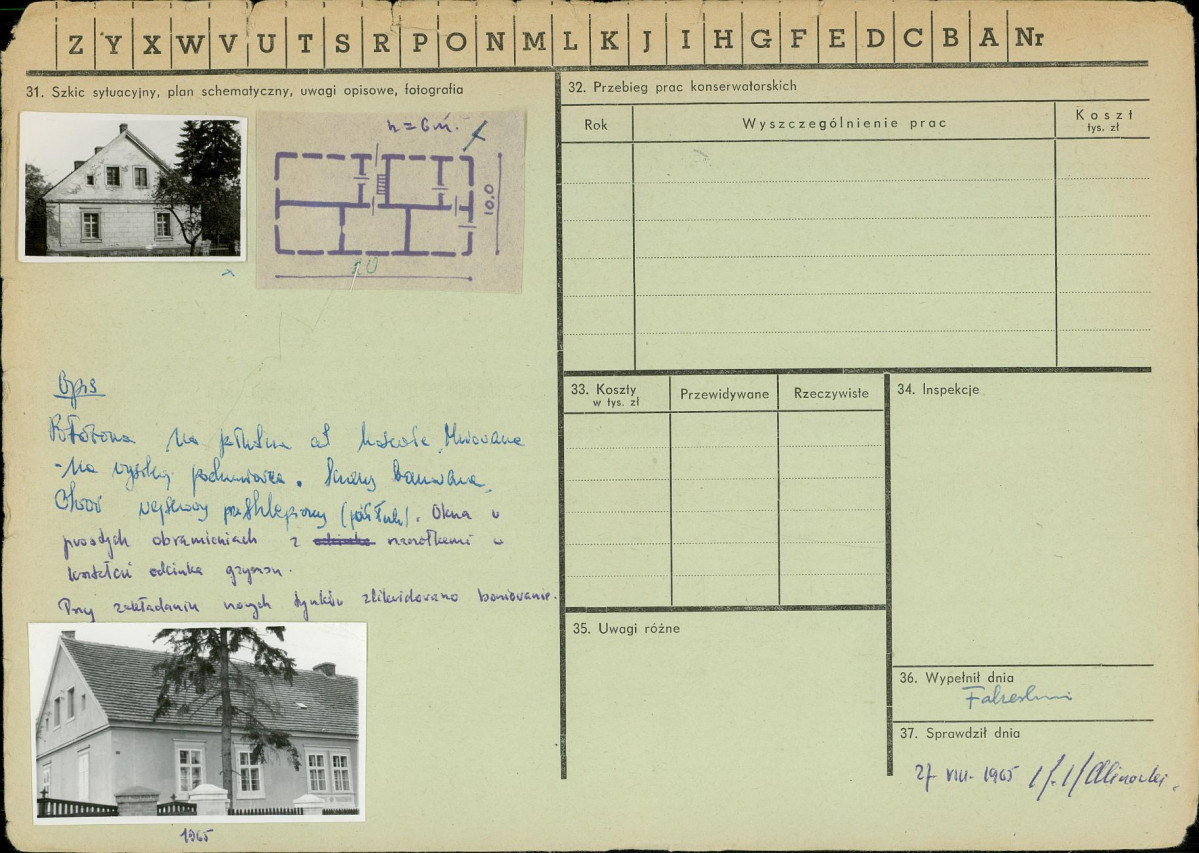 Z Y X W V U T S R P O N M L K J I H G F E D C B A Nr
31. Szkic sytuacyjny, plan schematyczny, uwagi opisowe, fotografia
h = 6 m.
10.0
20
Opis
Położona na północ od kościoła, Murowana
- na wysokiej podmurówce. Ściany boniowane.
Otwór wejściowy przesklepiony (półłuk). Okna w
prostych obramieniach z odcinka nasrółkami w
kształcie odcinka gzymsu.
Przy zakładaniu nowych tynków zlikwidowano boniowanie.
1965
32. Przebieg prac konserwatorskich
Rok
Wyszczególnienie prac
Koszt
tys. zł
33. Koszty
w tys. zł
Przewidywane
Rzeczywiste
34. Inspekcje
35. Uwagi różne
36. Wypełnił dnia
37. Sprawdził dnia
27 VIII. 1965